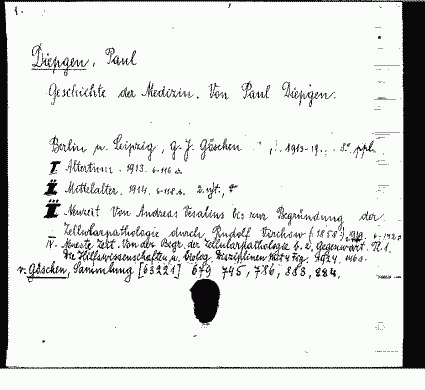 1.
Diepgen, Paul
Geschichte der Medizin. Von Paul Diepgen.
Berlin u. Leipzig, G. J. Göschen 1913-19..
I Altertum. 1913. 6-116 s.
II Mittelalter. 1914. 6-118 s.
III Neuzeit Von Andreas Vesalius bis zur Begründung der
Zellularpathologie durch Rudolf Virchow (1858)
IV. Neueste Zeit. Von der Begr. der Zellularpathologie b. z. Gegenwart.
die Hilfswissenschaften u. biolog. Disziplinen 1924.
v. Göschen, Sammlung [63221] 679 745, 786, 883, 884.